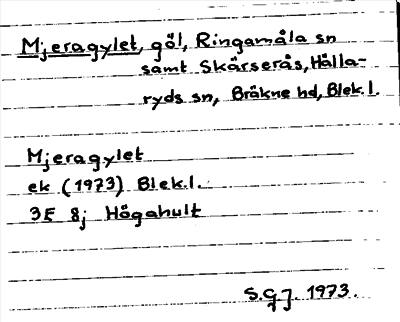 Mjeragylet, göl, Ringamåla sn
samt Skärserås, Hälla-
ryds sn, Bräkne hd, Blek. l.
Mjeragylet
ek (1973) Blek. l.
3E 8j Högahult
S.G.J. 1973.